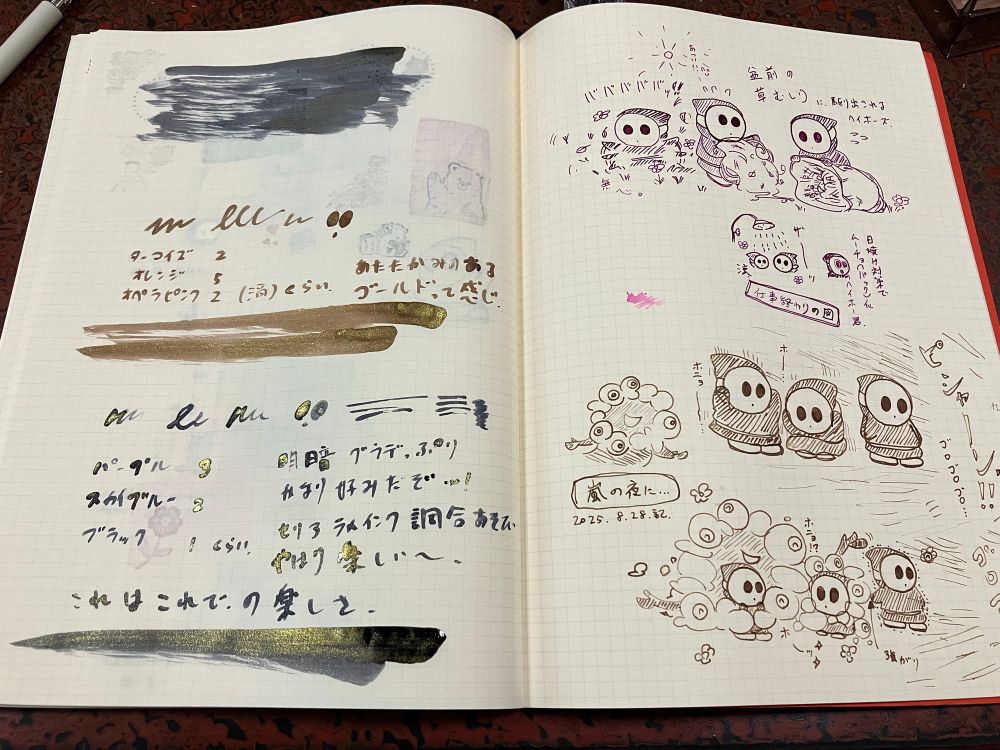 ターコイズ 2
オレンジ 5
オペラピンク 2 (滴)くらい
あたたかみのある
ゴールドって感じ。
パープル 9
スカイブルー 2
ブラック 1 くらい
明暗 グラデ、ぷり
かなり好みだぞ…!
セリア ラメインク 調合あそび
やはり楽しい〜。
これはこれで。の楽しさ。
あぃぃ…
バババババッ
盆前の
草むしり に、駆り出される
ヘイホーズ.
無心。
ザーッ
涼
仕事終わりの図
日焼け対策で
ヘイホー君.
ホニョ
ホー
ゴロゴロゴロ…
嵐の夜に…
2025. 8.28.記.
ホニョ!?
ホッ
強がり